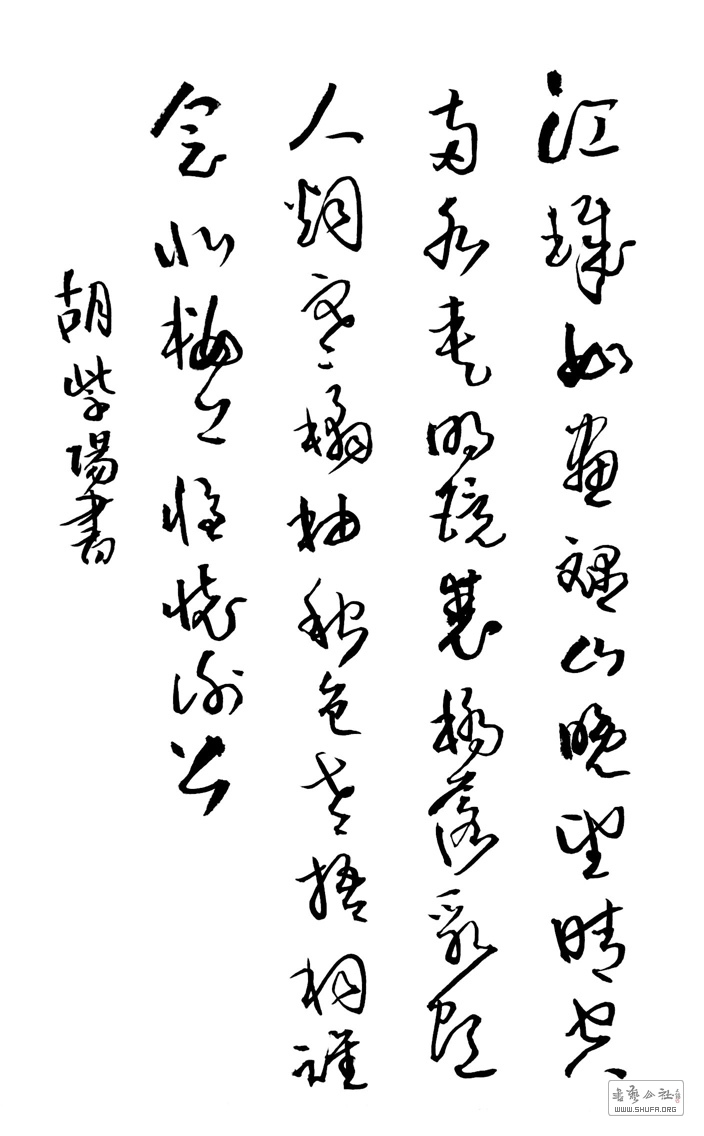 江城如畫裡山晚望晴空
兩水夾明鏡雙橋落彩虹
人烟寒橘柚秋色老梧桐誰
念北樓上臨懷謝公
胡紫陽書
書藝公社
WWW.SHUFA.ORG